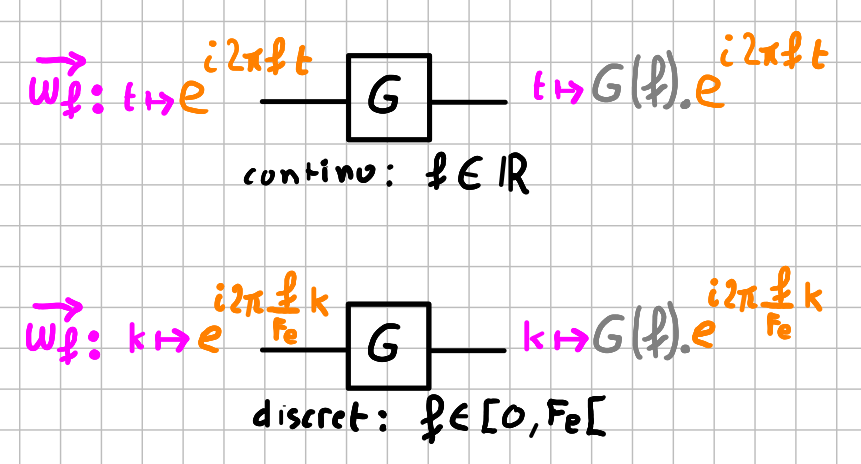 w⃗_f : t ↦ e^{i2πft} G t ↦ G(f).e^{i2πft}
continu : f ∈ ℝ
w⃗_f : k ↦ e^{i2π f/Fe k} G k ↦ G(f).e^{i2π f/Fe k}
discret : f ∈ [0, Fe[